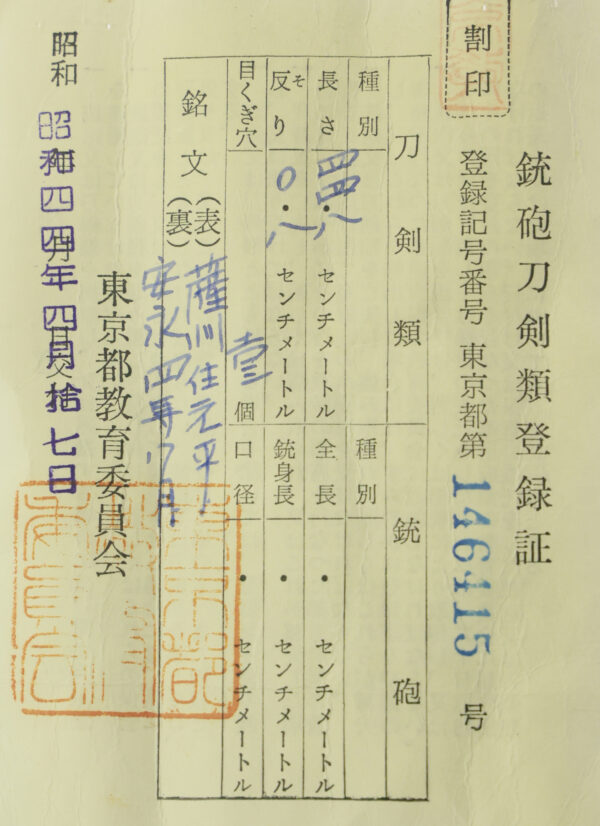 割印
銃砲刀剣類登録証
登録記号番号 東京都第146415号
刀剣類
銃砲
種別
種別
長さ 四四・八 センチメートル
全長 ・ センチメートル
反り そ 〇・八 センチメートル
銃身長 ・ センチメートル
目くぎ穴 壱個
口径 ・ センチメートル
銘文
(表) 薩州住元平
(裏) 安永四年 月
東京都教育委員会
昭和
昭和四四年四月拾七日